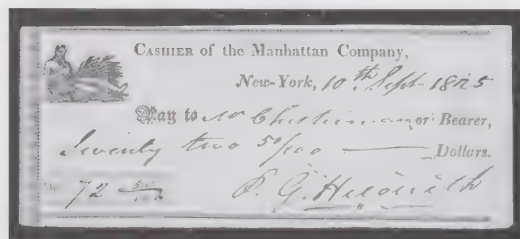 CASHIER of the Manhattan Company,
New-York, 10th Sept 1825
Pay to Mr Cheshiman or Bearer,
Seventy two 50/100 Dollars.
72 50/100